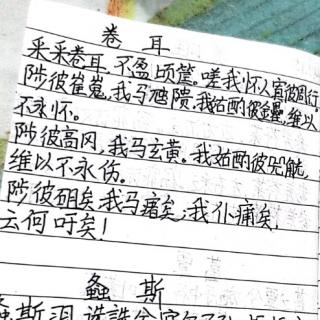 卷耳
采采卷耳,不盈顷筐。嗟我怀人,寘彼周行。
陟彼崔嵬,我马虺隤。我姑酌彼金罍,维以
不永怀。
陟彼高冈,我马玄黄。我姑酌彼兕觥,
维以不永伤。
陟彼砠矣,我马瘏矣,我仆痡矣,
云何吁矣!
螽斯
螽斯羽,诜诜兮